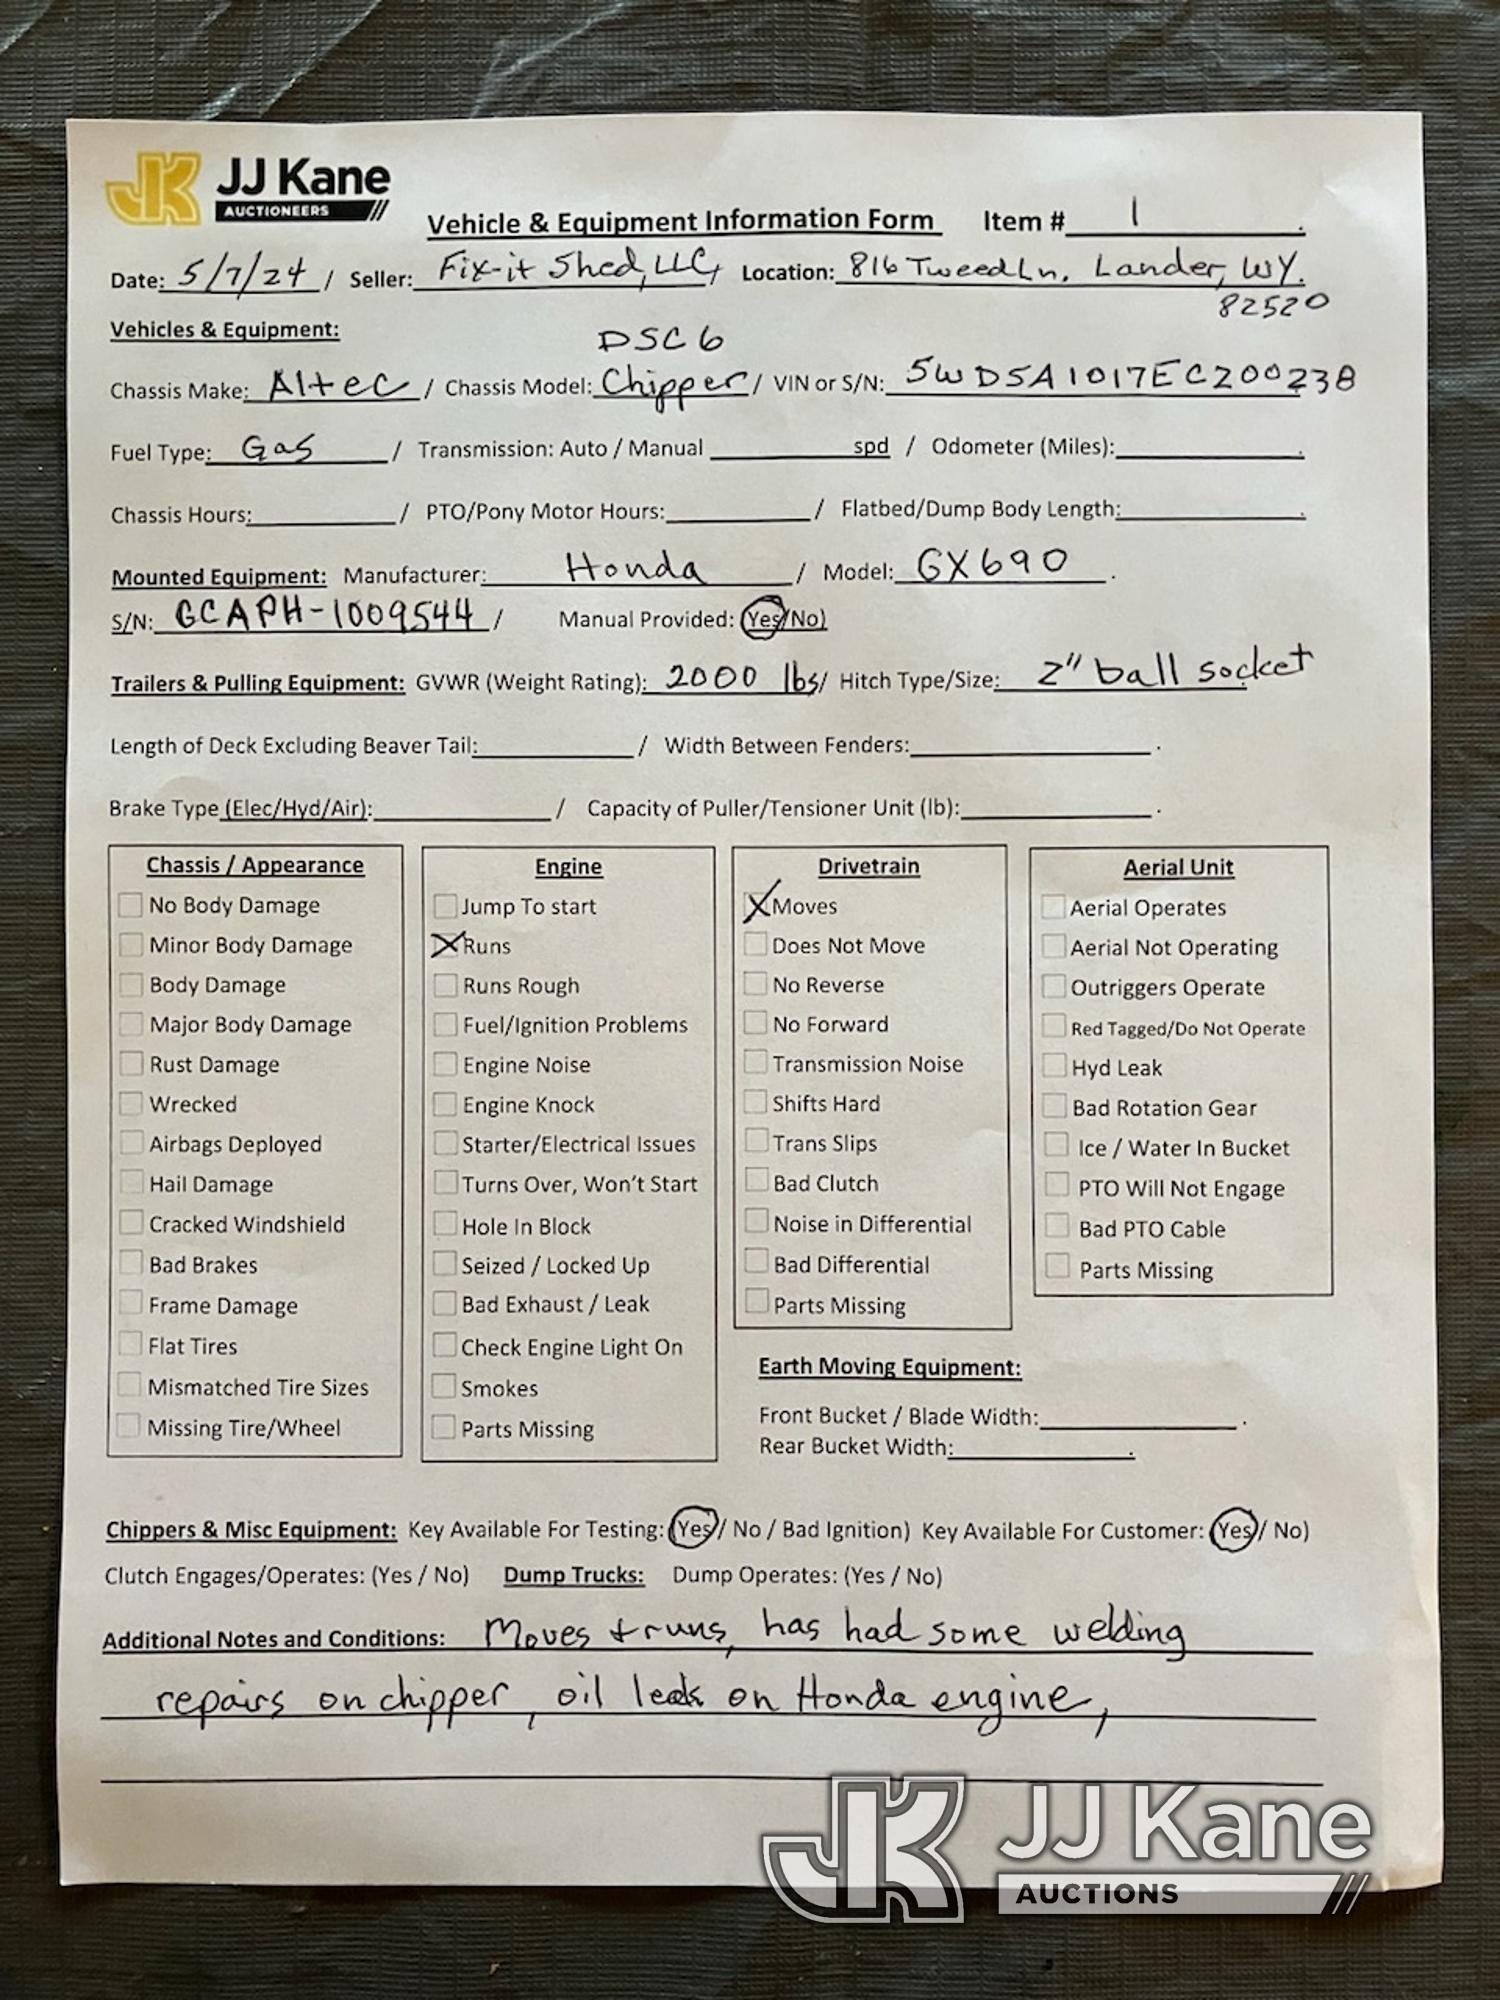 JJ Kane
AUCTIONEERS
Vehicle & Equipment Information Form Item # 1
Date: 5/7/24 / Seller: Fix-it Shed, LLC, Location: 816 Tweed Ln. Lander, WY.
82520
Vehicles & Equipment:
DSC6
Chassis Make: Altec / Chassis Model: Chipper / VIN or S/N: 5WD5A1017EC200238
Fuel Type: Gas / Transmission: Auto / Manual spd / Odometer (Miles): .
Chassis Hours: / PTO/Pony Motor Hours: / Flatbed/Dump Body Length: .
Mounted Equipment: Manufacturer: Honda / Model: GX690 .
S/N: GCAPH-1009544 / Manual Provided: (Yes/No)
Trailers & Pulling Equipment: GVWR (Weight Rating): 2000 lbs / Hitch Type/Size: 2" ball socket
Length of Deck Excluding Beaver Tail: / Width Between Fenders: .
Brake Type (Elec/Hyd/Air): / Capacity of Puller/Tensioner Unit (lb): .
Chassis / Appearance
No Body Damage
Minor Body Damage
Body Damage
Major Body Damage
Rust Damage
Wrecked
Airbags Deployed
Hail Damage
Cracked Windshield
Bad Brakes
Frame Damage
Flat Tires
Mismatched Tire Sizes
Missing Tire/Wheel
Engine
Jump To start
X Runs
Runs Rough
Fuel/Ignition Problems
Engine Noise
Engine Knock
Starter/Electrical Issues
Turns Over, Won't Start
Hole In Block
Seized / Locked Up
Bad Exhaust / Leak
Check Engine Light On
Smokes
Parts Missing
Drivetrain
X Moves
Does Not Move
No Reverse
No Forward
Transmission Noise
Shifts Hard
Trans Slips
Bad Clutch
Noise in Differential
Bad Differential
Parts Missing
Aerial Unit
Aerial Operates
Aerial Not Operating
Outriggers Operate
Red Tagged/Do Not Operate
Hyd Leak
Bad Rotation Gear
Ice / Water In Bucket
PTO Will Not Engage
Bad PTO Cable
Parts Missing
Earth Moving Equipment:
Front Bucket / Blade Width: .
Rear Bucket Width: .
Chippers & Misc Equipment: Key Available For Testing: (Yes / No / Bad Ignition) Key Available For Customer: (Yes / No)
Clutch Engages/Operates: (Yes / No) Dump Trucks: Dump Operates: (Yes / No)
Additional Notes and Conditions: Moves + runs, has had some welding
repairs on chipper, oil leak on Honda engine,
JJ Kane
AUCTIONS